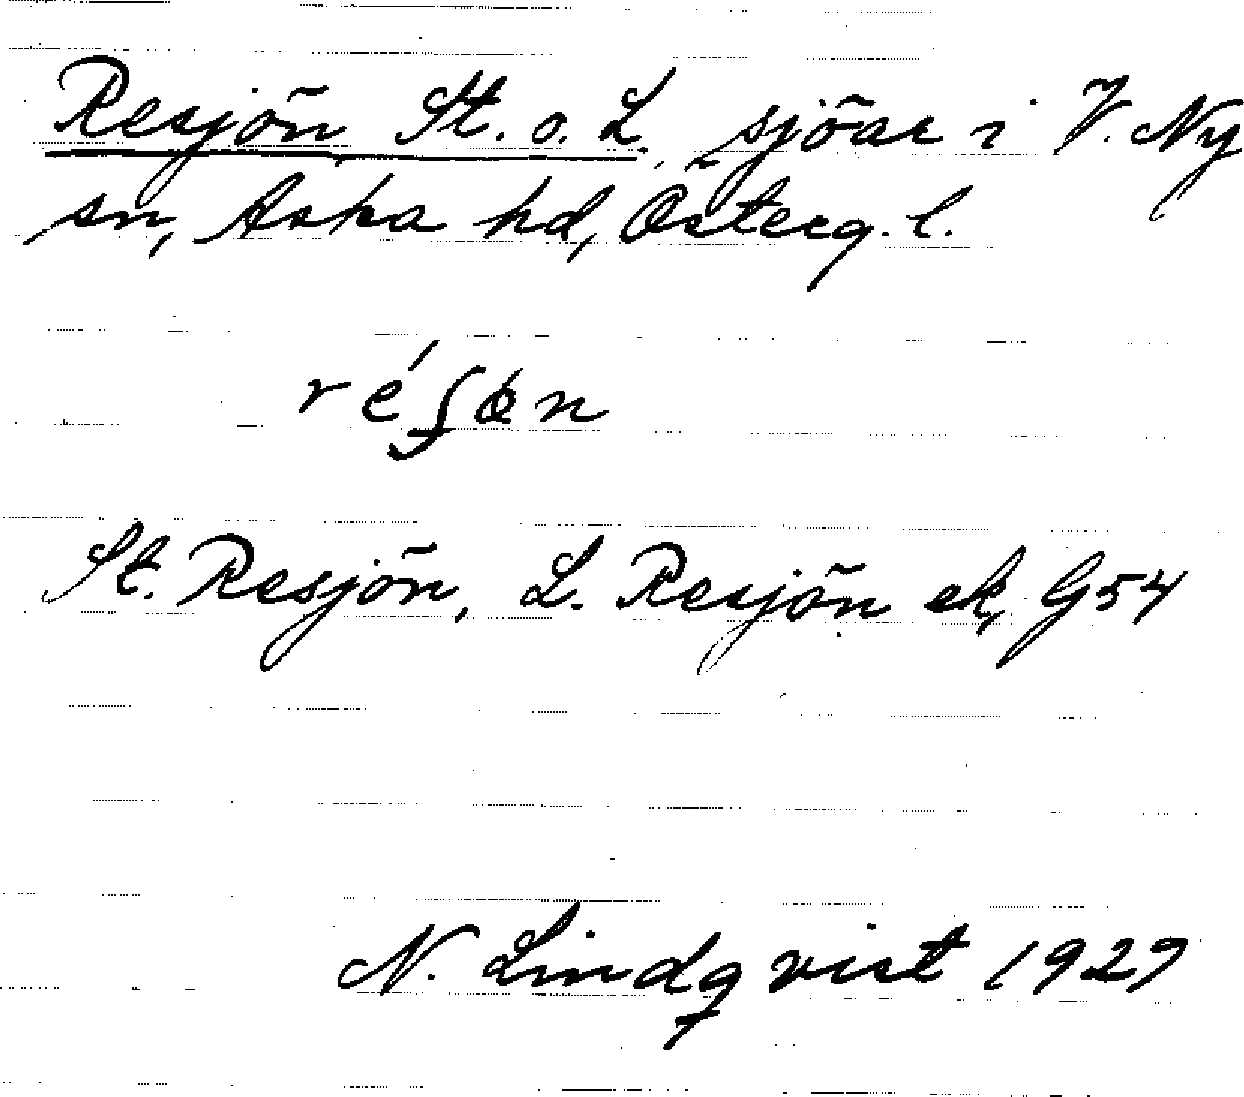 Resjön St. o. L., sjöar i V. Ny
sn, Aska hd, Österg. l.
St. Resjön, L. Resjön ek, G54
N. Lindqvist 1927